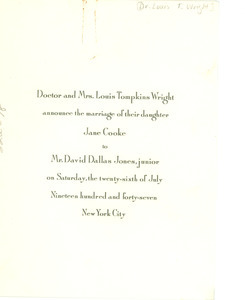 (Dr. Louis T. Wright)
Doctor and Mrs. Louis Tompkins Wright
announce the marriage of their daughter
Jane Cooke
to
Mr. David Dallan Jones, junior
on Saturday, the twenty-sixth of July
Nineteen hundred and forty-seven
New York City